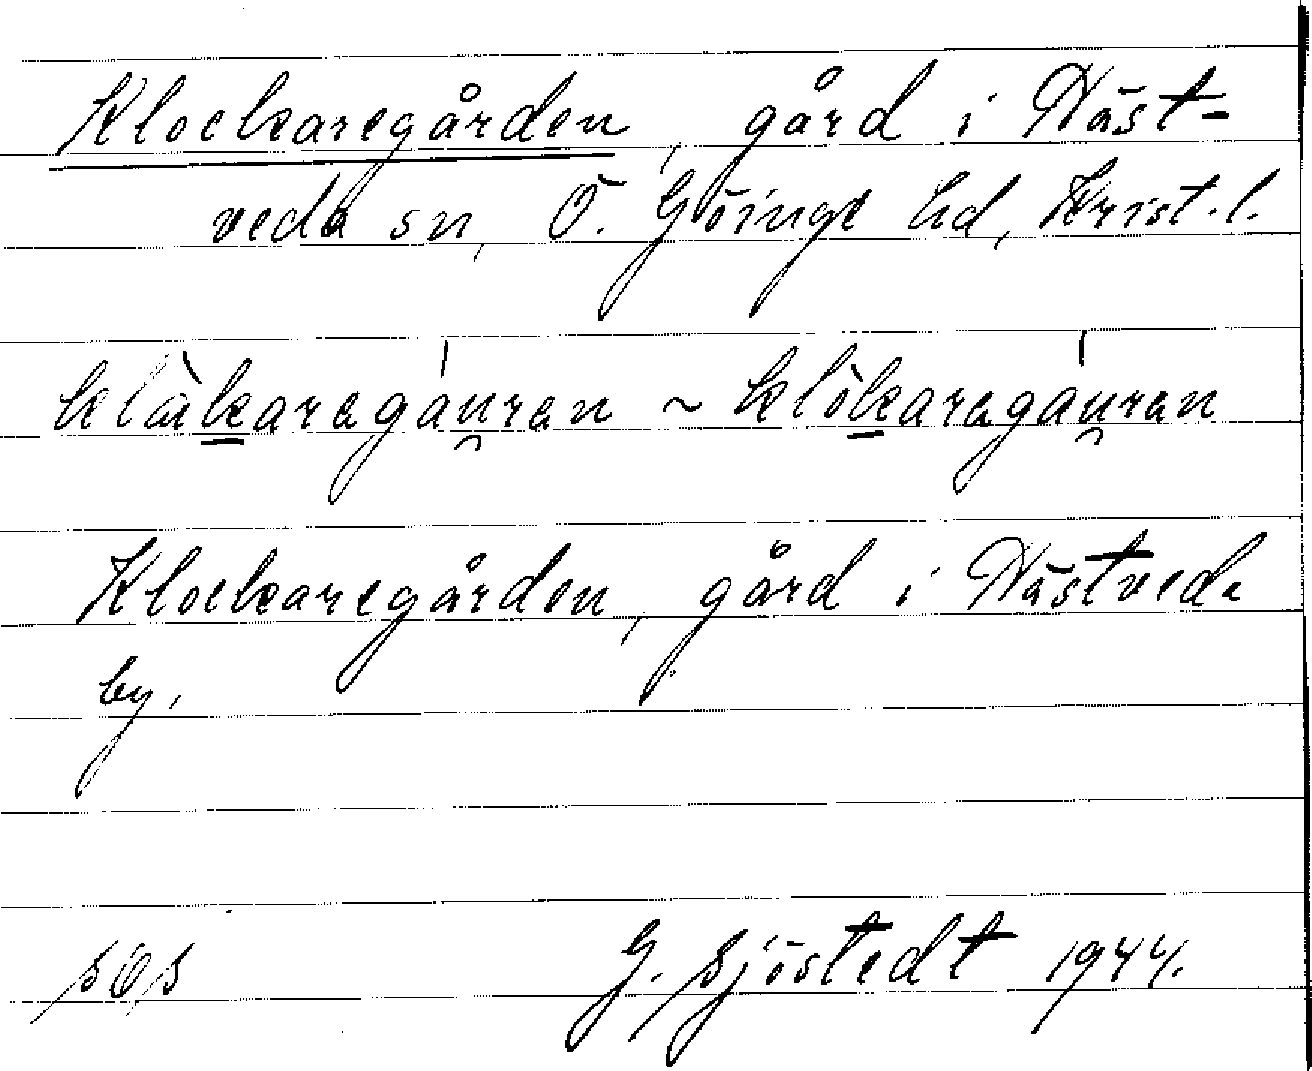 Klockaregården, gård i Näst-
veda sn, Ö. Göinge hd, Krist. l.
klåkaregauren ~ klökaregauren
Klockaregården, gård i Nästveda
by.
sös G. Sjöstedt 1944.